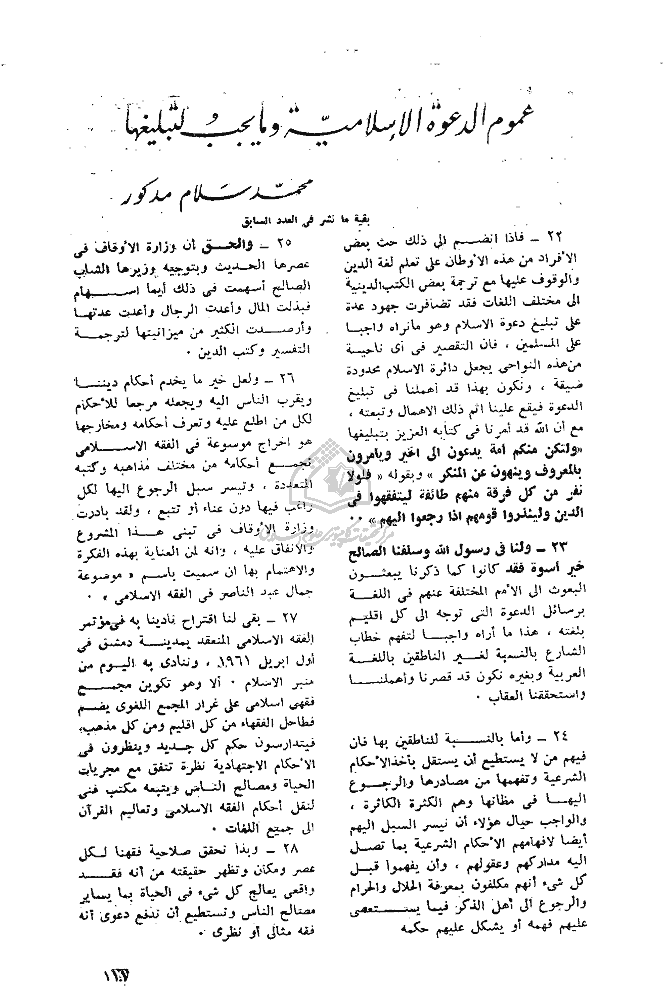 عموم الدعوة الإسلامية وما يجب لتبليغها
محمد سلام مدكور
بقية ما نشر في العدد السابق
٢٢ ــ فاذا انضم الى ذلك حث بعض
الأفراد من هذه الأوطان على تعلم لغة الدين
والوقوف عليها مع ترجمة بعض الكتب الدينية
الى مختلف اللغات فقد تضافرت جهود عدة
على تبليغ دعوة الاسلام وهو مانراه واجبا
على المسلمين ، فان التقصير فى أى ناحية
من هذه النواحى يجعل دائرة الاسلام محدودة
ضيقة ، ونكون بهذا قد أهملنا فى تبليغ
الدعوة فيقع علينا اثم ذلك الاهمال وتبعته ،
مع أن الله قد أمرنا فى كتابه العزيز بتبليغها
«ولتكن منكم أمة يدعون الى الخير ويأمرون
بالمعروف وينهون عن المنكر » وبقوله « فلولا
نفر من كل فرقة منهم طائفة ليتفقهوا فى
الدين ولينذروا قومهم اذا رجعوا اليهم » ٠٠
٢٣ ــ ولنا فى رسول الله وسلفنا الصالح
خير أسوة فقد كانوا كما ذكرنا يبعثون
البعوث الى الأمم المختلفة عنهم فى اللغة
برسائل الدعوة التى توجه الى كل اقليم
بلغته ، هذا ما أراه واجبا لتفهم خطاب
الشارع بالنسبة لغير الناطقين باللغة
العربية وبغيره نكون قد قصرنا وأهملنا
واستحققنا العقاب ٠
٢٤ ــ وأما بالنسبة للناطقين بها فان
فيهم من لا يستطيع أن يستقل بأخذ الأحكام
الشرعية وتفهمها من مصادرها والرجوع
اليها فى مظانها وهم الكثرة الكاثرة ،
والواجب حيال هؤلاء أن نيسر السبل اليهم
أيضا لافهامهم الأحكام الشرعية بما تصل
اليه مداركهم وعقولهم ، وأن يفهموا قبل
كل شىء أنهم مكلفون بمعرفة الحلال والحرام
والرجوع الى أهل الذكر فيما يستعصى
عليهم فهمه أو يشكل عليهم حكمه
٢٥ ــ والحق أن وزارة الأوقاف فى
عصرها الحديث وبتوجيه وزيرها الشاب
الصالح أسهمت فى ذلك أيما اسهام
فبذلت المال وأعدت الرجال وأعدت عدتها
وأرصدت الكثير من ميزانيتها لترجمة
التفسير وكتب الدين ٠
٢٦ ــ ولعل خير ما يخدم أحكام ديننا
ويقرب الناس اليه ويجعله مرجعا للأحكام
لكل من اطلع عليه وتعرف أحكامه ومخارجها
هو اخراج موسوعة فى الفقه الاسلامى
تجمع أحكامه من مختلف مذاهبه وكتبه
المتعددة ، وتيسر سبل الرجوع اليها لكل
راغب فيها دون عناء أو تتبع ، ولقد بادرت
وزارة الأوقاف فى تبنى هذا المشروع
والانفاق عليه ، وانه لمن العناية بهذه الفكرة
والاهتمام بها ان سميت باسم « موسوعة
جمال عبد الناصر فى الفقه الاسلامى » ٠
٢٧ ــ بقى لنا اقتراح نادينا به فى مؤتمر
الفقه الاسلامى المنعقد بمدينة دمشق فى
أول ابريل ١٩٦١ ، وننادى به اليوم من
منبر الاسلام ٠ ألا وهو تكوين مجمع
فقهى اسلامى على غرار المجمع اللغوى يضم
فطاحل الفقهاء من كل اقليم ومن كل مذهب،
فيتدارسون حكم كل جديد وينظرون فى
الأحكام الاجتهادية نظرة تتفق مع مجريات
الحياة ومصالح الناس ويتبعه مكتب فنى
لنقل أحكام الفقه الاسلامى وتعاليم القرآن
الى جميع اللغات ٠
٢٨ ــ وبذا تحقق صلاحية فقهنا لكل
عصر ومكان وتظهر حقيقته من أنه فقه
واقعى يعالج كل شىء فى الحياة بما يساير
مصالح الناس ونستطيع أن ندفع دعوى أنه
فقه مثالى أو نظرى ٠